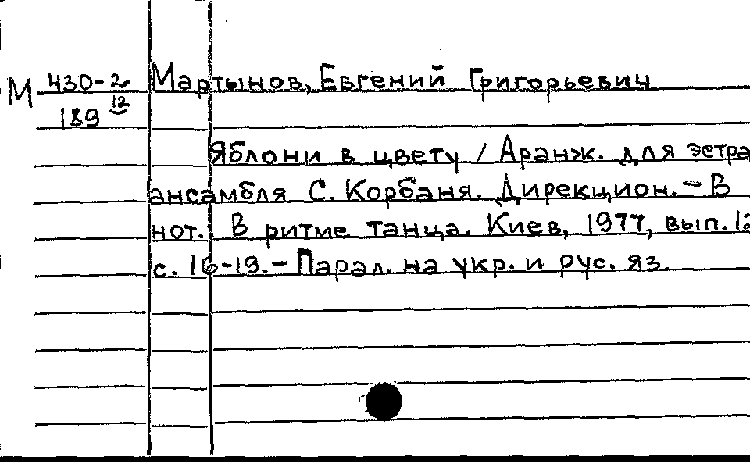 М 430-2 Мартынов, Евгений Григорьевич
189 12
Яблони в цвету / Аранж. для эстра
ансамбля С. Корбаня. Дирекцион. - В
нот. В ритме танца. Киев, 1977, вып. 12
с. 16-19. - Парал. на укр. и рус. яз.